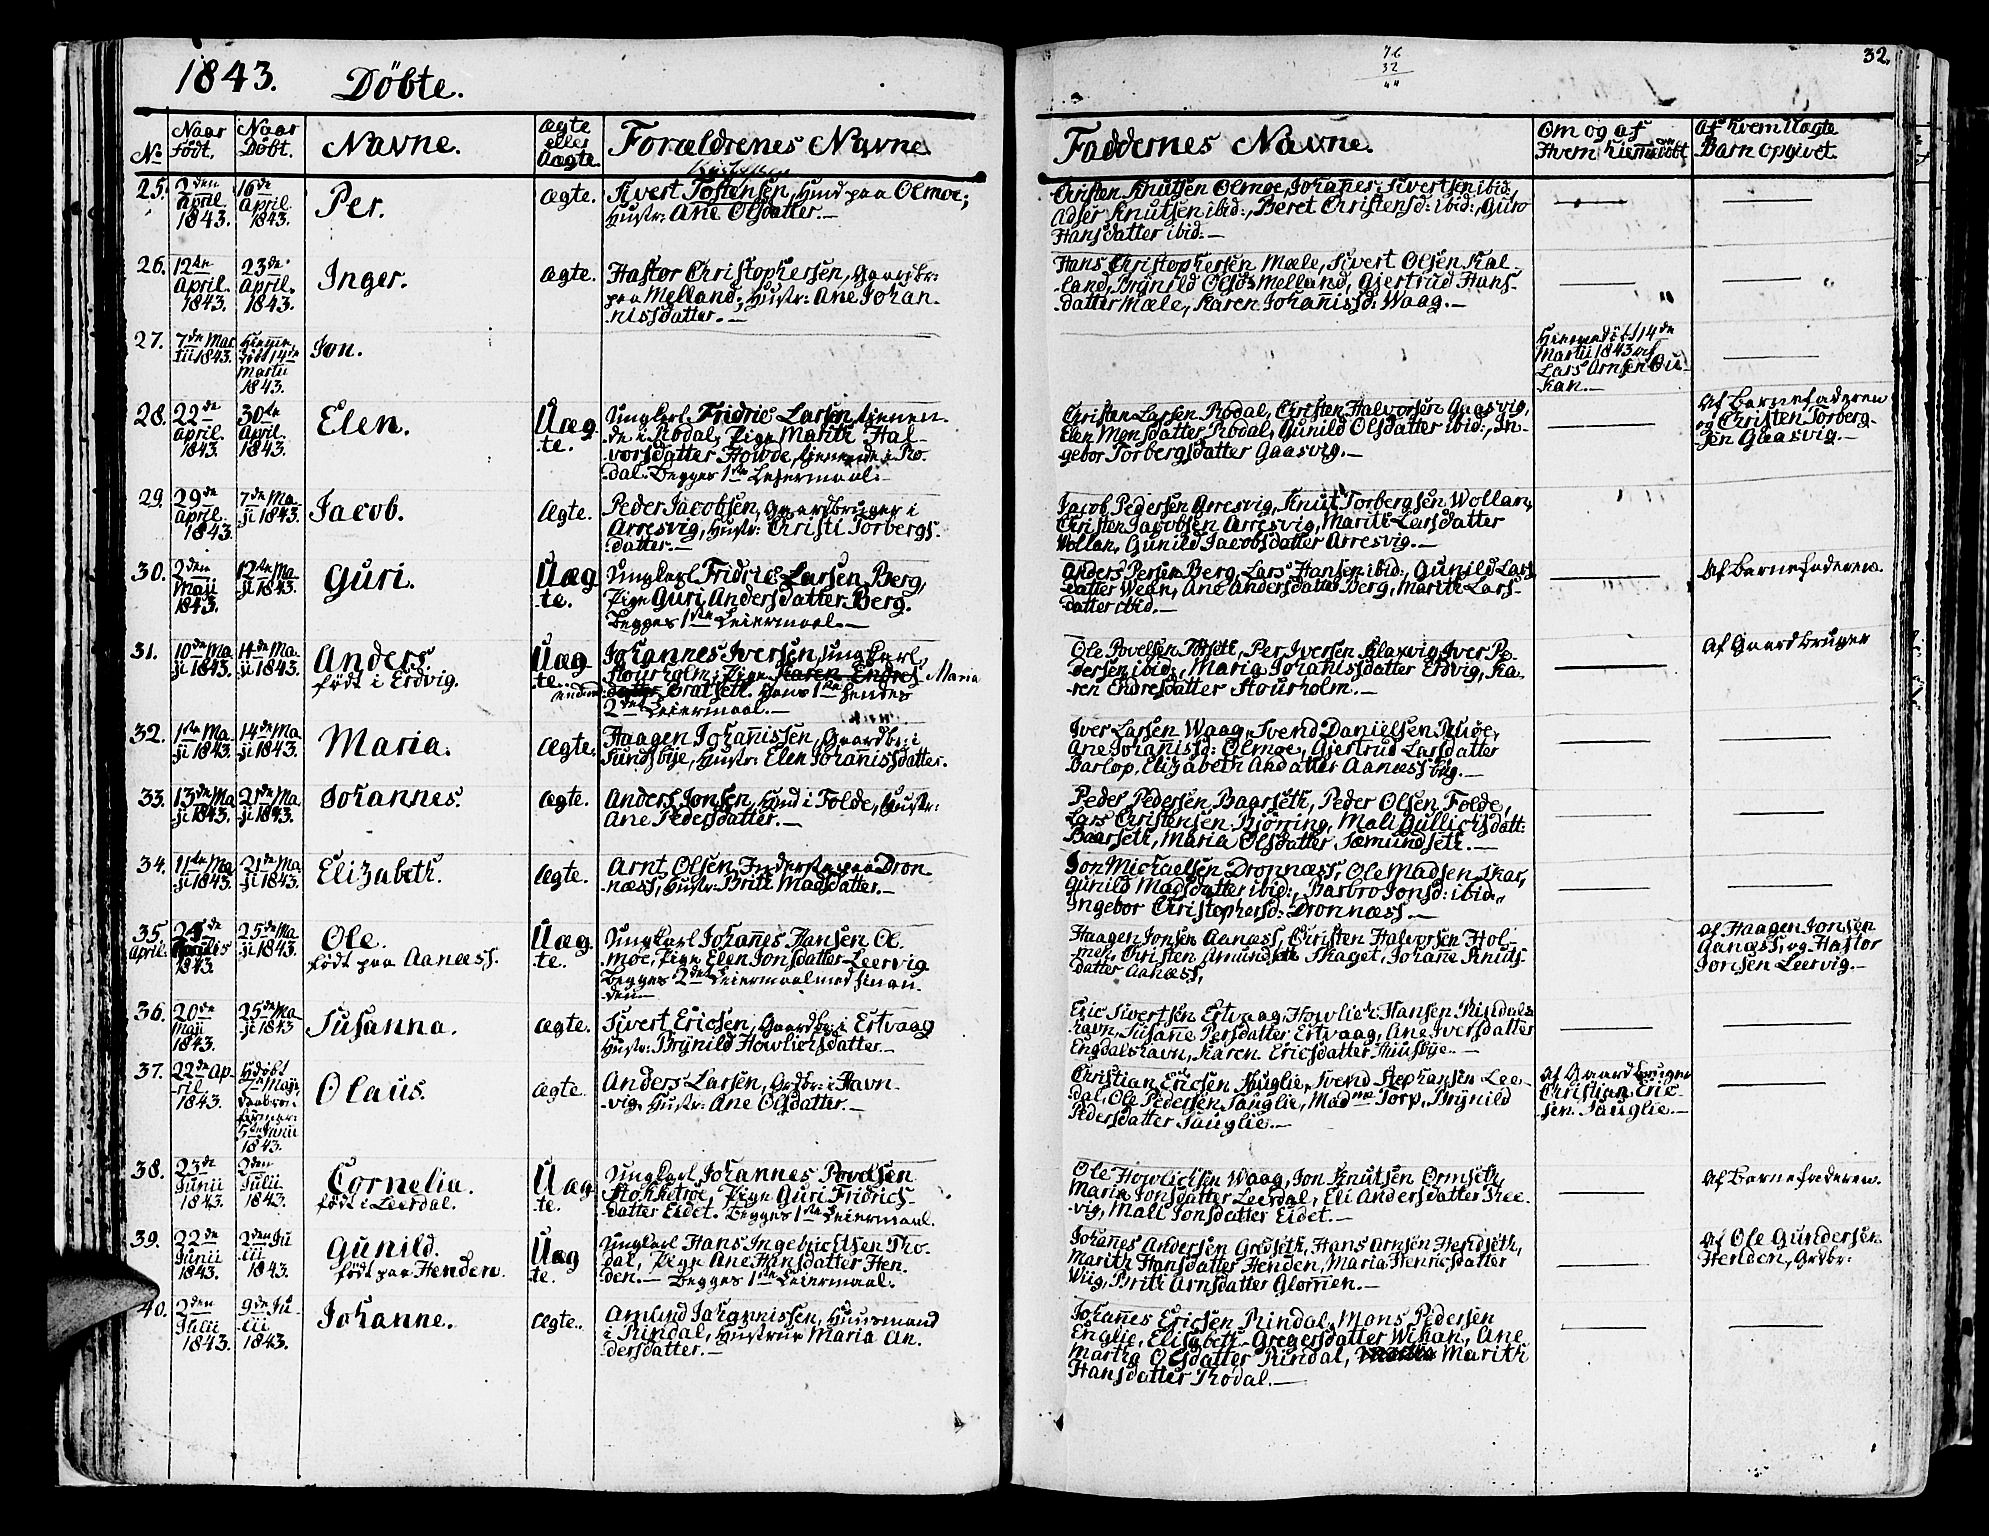 1843. Döbte.
76
32
44
32.
No
Naar
födt.
Naar
Döbt.
Navne.
ægte
eller
Uægte.
Forældrenes Navne
Faddernes Navne.
Om og af
Hvem hiemedöbt
Af hvem Uægte
Barn opgivet.
25.
2den
April.
1843.
16de
April
1843.
Per.
ægte.
Sivert Tostensen, Huusm. paa Olmoe;
Hustr: Ane Olsdatter.—
Christen Knutsen Olmoe, Johanes Sivertsen ibid.,
Adser Knutsen ibid:, Beret Christensd: ibid:, Guro
Hansdatter ibid:—
26.
12te
April.
1843.
23de
April.
1843.
Inger.
ægte.
Hastor Christophersen, Gaardbr:
paa Melland; Hustr: Ane Johan-
nissdatter.—
Hans Christophersen Mæle, Sivert Olsen Kal-
land, Brÿnild Olsd: Melland, Gjertrud Hans-
datter Mæle, Karen Johanissd: Waag.—
27.
7de Mar
tii 1843.
Hiemme
döbt 14de
Martii
1843.
Jon.
Hiemmedöbt 14de
Martii 1843 af
Lars Arnsen
28.
22de
April.
1843.
30te
April.
1843.
Elen.
Uæg
te.
Ungkarl Fridric Larsen, tienen-
de i Rodal, Pige Marith Hal-
vorsdatter Howde, tienende i Ro-
dal. Begges 1ste Leiermaal.
Christen Larsen Rodal, Christen Halvorsen Gaasvig,
Elen Monsdatter Rodal, Gunild Olsdatter ibid:, In-
gebor Torbergsdatter Gaasvig.—
Af Barnefaderen
og Christen Torberg-
sen Gaasvig.—
29.
29de
April.
1843.
7de Ma
ji 1843.
Jacob.
Ægte.
Peder Jacobsen, Gaardbruger i
Arresvig, Hustr: Christi Torbergs-
datter.—
Jacob Pedersen Arresvig, Knut Torbergsen Wollan,
Christen Jacobsen Arresvig, Marith Larsdatter
Wollan, Gunild Jacobsdatter Arresvig.—
30.
2den
Maji
1843.
12te Ma
ji 1843.
Guri.
Uæg
te.
Ungkarl Fridric Larsen Berg,
Pige Guri Andersdatter Berg.
Begges 1ste Leiermaal.—
Anders Persen Berg, Lars Hansen ibid:, Gunild Lars
datter Wean, Ane Andersdatter Berg, Marith Lars-
datter ibid.—
Af Barnefaderen.
31.
10de Ma
ji 1843.
14de Ma
ji 1843.
Anders.
födt i Erdvig.
Uæg
te.
Johannes Iversen, ungkarl,
Stourholm; Pige Karen Endres Maria
datter Bratsett. Hans 1ste Hendes
2det Leiermaal.—
Ole Povelsen Torsett, Per Iversen Klaxvig, Iver Pe-
dersen ibid:, Maria Johanisdatter Erdvig, Ka-
ren Endresdatter Stourholm.—
Af Gaardbruger
32.
1ste Ma
ji 1843.
14de Ma
ji 1843.
Maria.
ægte.
Haagen Johanissen, Gaardbr: i
Sundsbÿe, Hustr: Elen Johanissdatter.
Iver Larsen Waag, Svend Daniëlsen Ruöe,
Ane Johanissd: Olmoe, Gjertrud Larsdatter
Barlop, Elizabeth Andatter Aanæssbug.—
33.
13de Ma
ji 1843.
21de Ma
ji 1843.
Johannes.
ægte.
Anders Jonsen, Huusm. i Folde, Hustr:
Ane Pedersdatter.—
Peder Pedersen Baarseth, Peder Olsen Folde,
Lars Christensen Bjørring, Mali Gullichsdatt:
Baarseth, Maria Olsdatter Sæmundseth.—
34.
11te Ma
ji 1843.
21de Ma
ji 1843.
Elizabeth.
ægte.
Arnt Olsen Inderste paa Dron-
næss, Hustr: Brit Madsdatter.—
Jon Michaelsen Dronnæss, Ole Madsen Skar,
Gunild Madsdatter ibid:, Barbro Jonsd: ibid:,
Ingebor Christophersd: Dronnæss.—
35
April.
24de
Aprilis
1843.
25de Ma
ji 1843.
Ole.
födt paa Aanæss.
Uæg
te.
Ungkarl Johanes Hansen Ol-
moe, Pige Elen Jonsdatter Leervig
Begges 2det Leiermaal med hinan
den
Haagen Jonsen Aanæss, Christen Halvorsen Hol-
men, Christen Amundsen Skaget, Johane Knuts-
datter Aanæss,
Af Haagen Jonsen
Aanæss, og Hastor
Jonsen Leervig.—
36.
20de
Maji
1843.
25de Ma
ji 1843
Susanna.
ægte.
Sivert Ericsen, Gaardbr: i Ertvaag
Hustr: Brÿnild Howlichsdatter.—
Eric Sivertsen Ertvaag, Howlich Hansen Rindals
havn, Susane Persdatter Ertvaag, Ane Iversdatter
Engdalshavn, Karen Ericsdatter Huusbÿe.—
37.
22de Ap-
ril
1843.
Hdöbt
7de Maji,
5te Junii
1843.
Olaus.
Ægte.
Anders Larsen, Grdbr: i Havn-
vig, Hustr: Ane Olsdatter.—
Christian Ericsen Sauglie, Svend Stephansen Lee-
dal, Ole Pedersen Sauglie, Madme Torp, Brÿnild
Pedersdatter Sauglie.—
Af Gaardbruger
Christian Eric-
sen Sauglie.—
38.
23de
Junii
1843.
2den
Julii
1843.
Cornelia.
födt i Leerdal.
Uæg
te.
Ungkarl Johannes Povelsen
Stokketroe, Pige Guri Fridrics-
datter Eidet. Begges 1ste Leiermaal.
Ole Howlichsen Waag, Jon Knutsen Ormseth,
Maria Jonsdatter Leerdal, Eli Andersdatter Skee-
vig, Mali Jonsdatter Eidet.—
Af Barnefaderen.
39.
22de
Junii
1843.
2den Ju
lii
1843.
Gunild.
födt paa Henden.
Uæg
te.
Ungkarl Hans Ingebrichtsen Ro-
dal, Pige Ane Hansdatter Hen-
den.— Begges 1ste Leiermaal.
Johanes Andersen Gredseth, Hans Arnsen Hendseth,
Marith Hansdatter Henden, Maria Henricsdatter
Wiig, Brith Arnsdatter Glomen.—
Af Ole Gundersen
Henden, Grdbr:
40.
2den
Julii
1843.
9de Ju-
lii
1843.
Johanne.
Ægte.
Amund Johannissen, Huusmand
i Rindal, Hustrue Maria An-
dersdatter.—
Johanes Ericsen Rindal, Mons Pedersen
Englie, Elisabeth Gregersdatter Wikan, Ane
Martha Olsdatter Rindal, Marith
Hansdatter Rodal.—